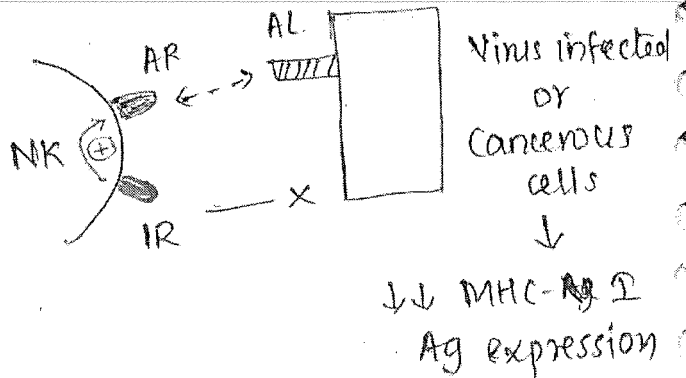 AL
AR
NK
+
IR
X
Virus infected
or
Cancerous
cells
↓
↓↓ MHC- I
Ag expression